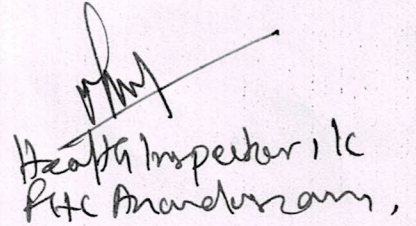 Health Inspector, Ic
PHC Anandusram,